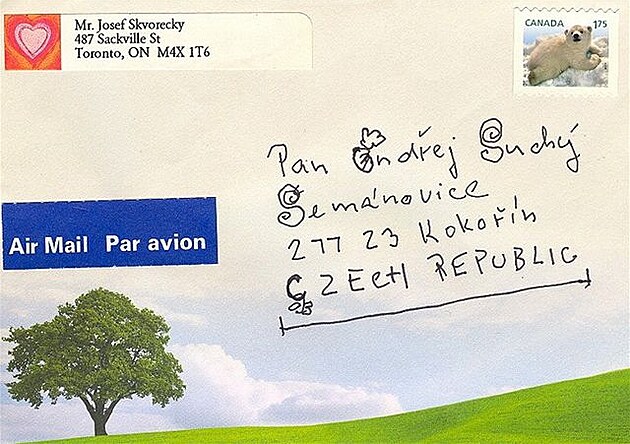 Mr. Josef Skvorecky
487 Sackville St
Toronto, ON M4X 1T6
CANADA 175
Pan Ondřej Suchý
Šemánovice
277 23 Kokořín
CZECH REPUBLIC
Air Mail Par avion